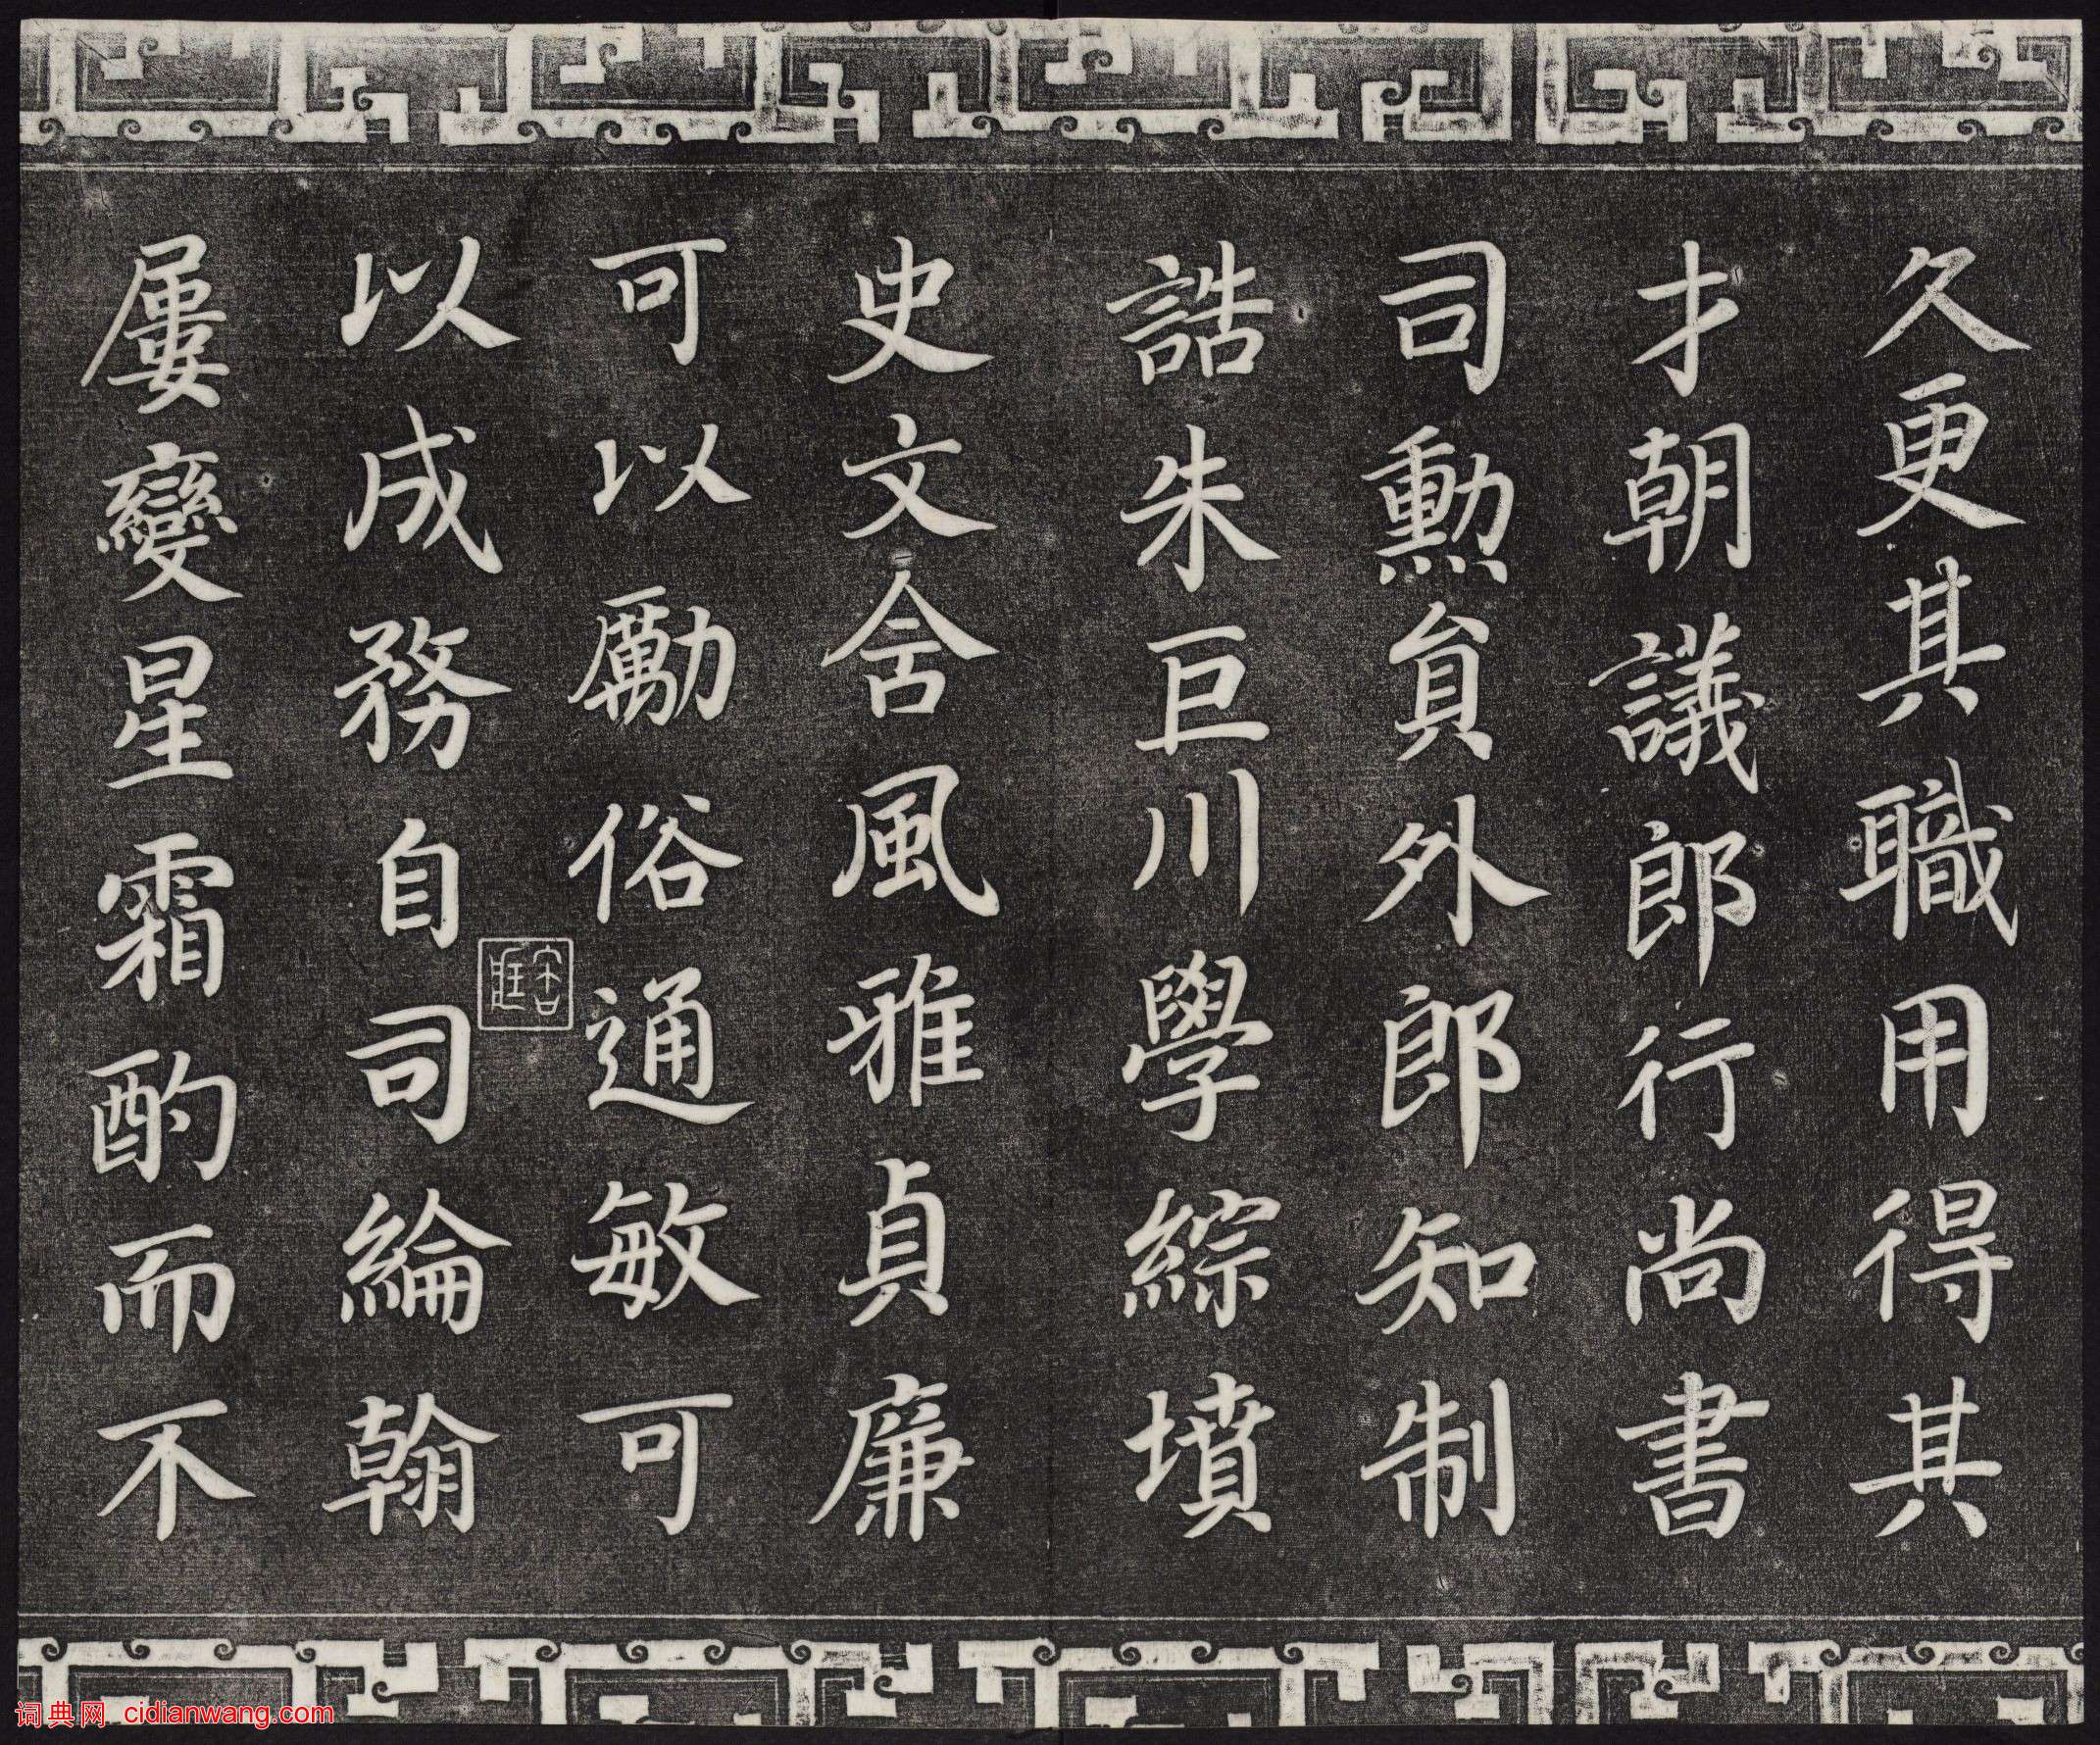 久更其職用得其
才朝議郎行尚書
司勲貟外郎知制
誥朱巨川學綜墳
史文舍風雅貞廉
可以勵俗通敏可
以成務自司綸翰
屢變星霜酌而不
词典网 cidianwang.com